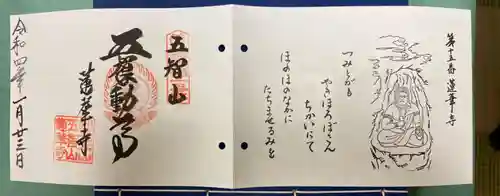 第十五番 蓮華寺
つみとがも
やきほろぼさん
ちかいにて
ほのほのなかに
たちませるみを
五智山
動尊
蓮華寺
令和四年一月廿三日